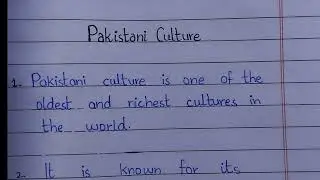 Pakistani Culture
1. Pakistani culture is one of the
oldest and richest cultures in
the world.
2. It is known for its